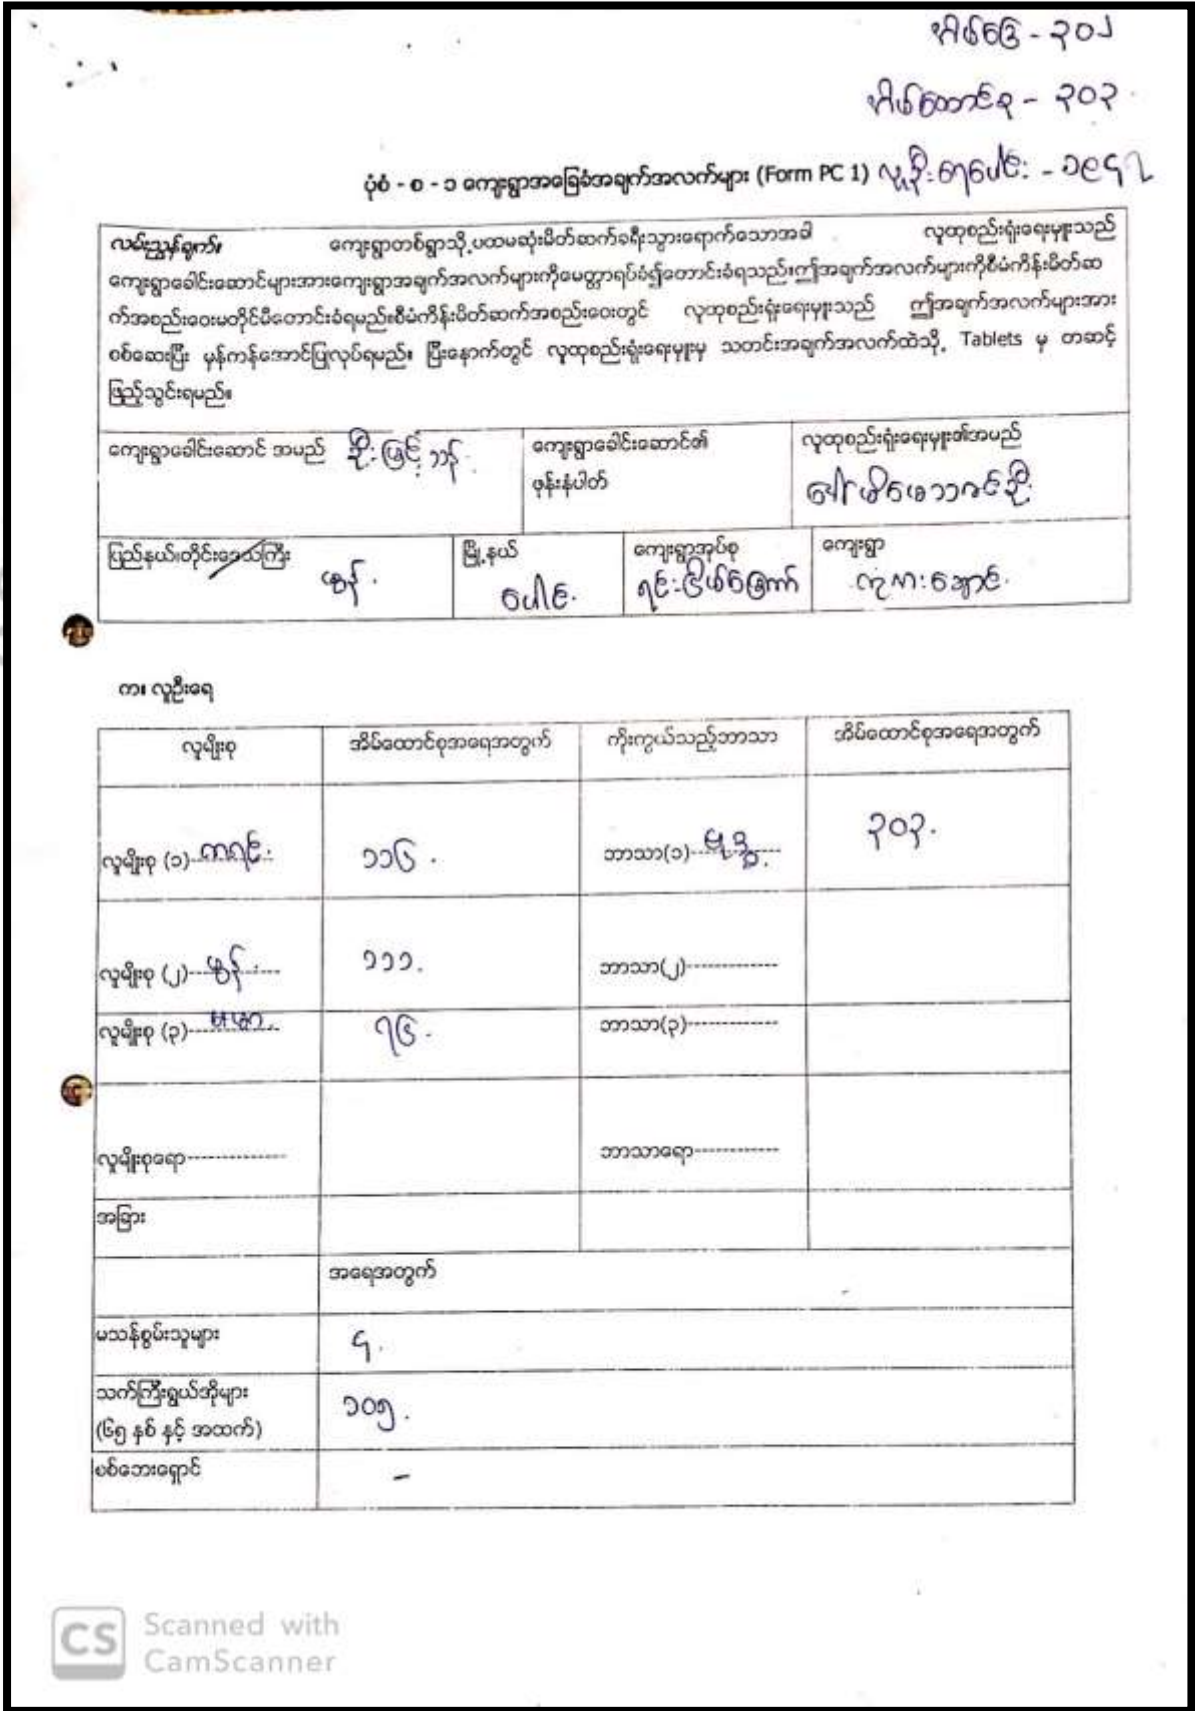 အိမ်ခြေ - ၃၀၂
အိမ်ထောင်စု - ၃၀၃
ပုံစံ - စ - ၁ ကျေးရွာအခြေခံအချက်အလက်များ (Form PC 1) လူဦးရေပေါင်း - ၁၉၄၇
လမ်းညွှန်ချက်။ ကျေးရွာတစ်ရွာသို့ ပထမဆုံးမိတ်ဆက်ခရီးသွားရောက်သောအခါ လူထုစည်းရုံးရေးမှူးသည်
ကျေးရွာခေါင်းဆောင်များအားကျေးရွာအချက်အလက်များကိုမေတ္တာရပ်ခံ၍တောင်းခံရသည်။ဤအချက်အလက်များကိုစီမံကိန်းမိတ်ဆ
က်အစည်းဝေးမတိုင်မီတောင်းခံရမည်။စီမံကိန်းမိတ်ဆက်အစည်းဝေးတွင် လူထုစည်းရုံးရေးမှူးသည် ဤအချက်အလက်များအား
စစ်ဆေးပြီး မှန်ကန်အောင်ပြုလုပ်ရမည်။ ပြီးနောက်တွင် လူထုစည်းရုံးရေးမှူးမှ သတင်းအချက်အလက်ထဲသို့ Tablets မှ တဆင့်
ဖြည့်သွင်းရမည်။
ကျေးရွာခေါင်းဆောင် အမည် ဦးမြင့်သန်း ကျေးရွာခေါင်းဆောင်၏ လူထုစည်းရုံးရေးမှူး၏အမည်
ဖုန်းနံပါတ်
ပြည်နယ်၊တိုင်းဒေသကြီး မွန် မြို့နယ် ပေါင် ကျေးရွာအုပ်စု ကျေးရွာ
က။ လူဦးရေ
လူမျိုးစု အိမ်ထောင်စုအရေအတွက် ကိုးကွယ်သည့်ဘာသာ အိမ်ထောင်စုအရေအတွက်
လူမျိုးစု (၁) ကရင် ၁၁၆ ဘာသာ(၁) ဗုဒ္ဓ ၃၀၃
လူမျိုးစု (၂) မွန် ၁၁၁ ဘာသာ(၂)
လူမျိုးစု (၃) ဗမာ ၇၆ ဘာသာ(၃)
လူမျိုးစုရော ဘာသာရော
အခြား
အရေအတွက်
မသန်စွမ်းသူများ ၄
သက်ကြီးရွယ်အိုများ ၁၀၅
(၆၅ နှစ် နှင့် အထက်)
စစ်ဘေးရှောင် -
CS Scanned with
CamScanner